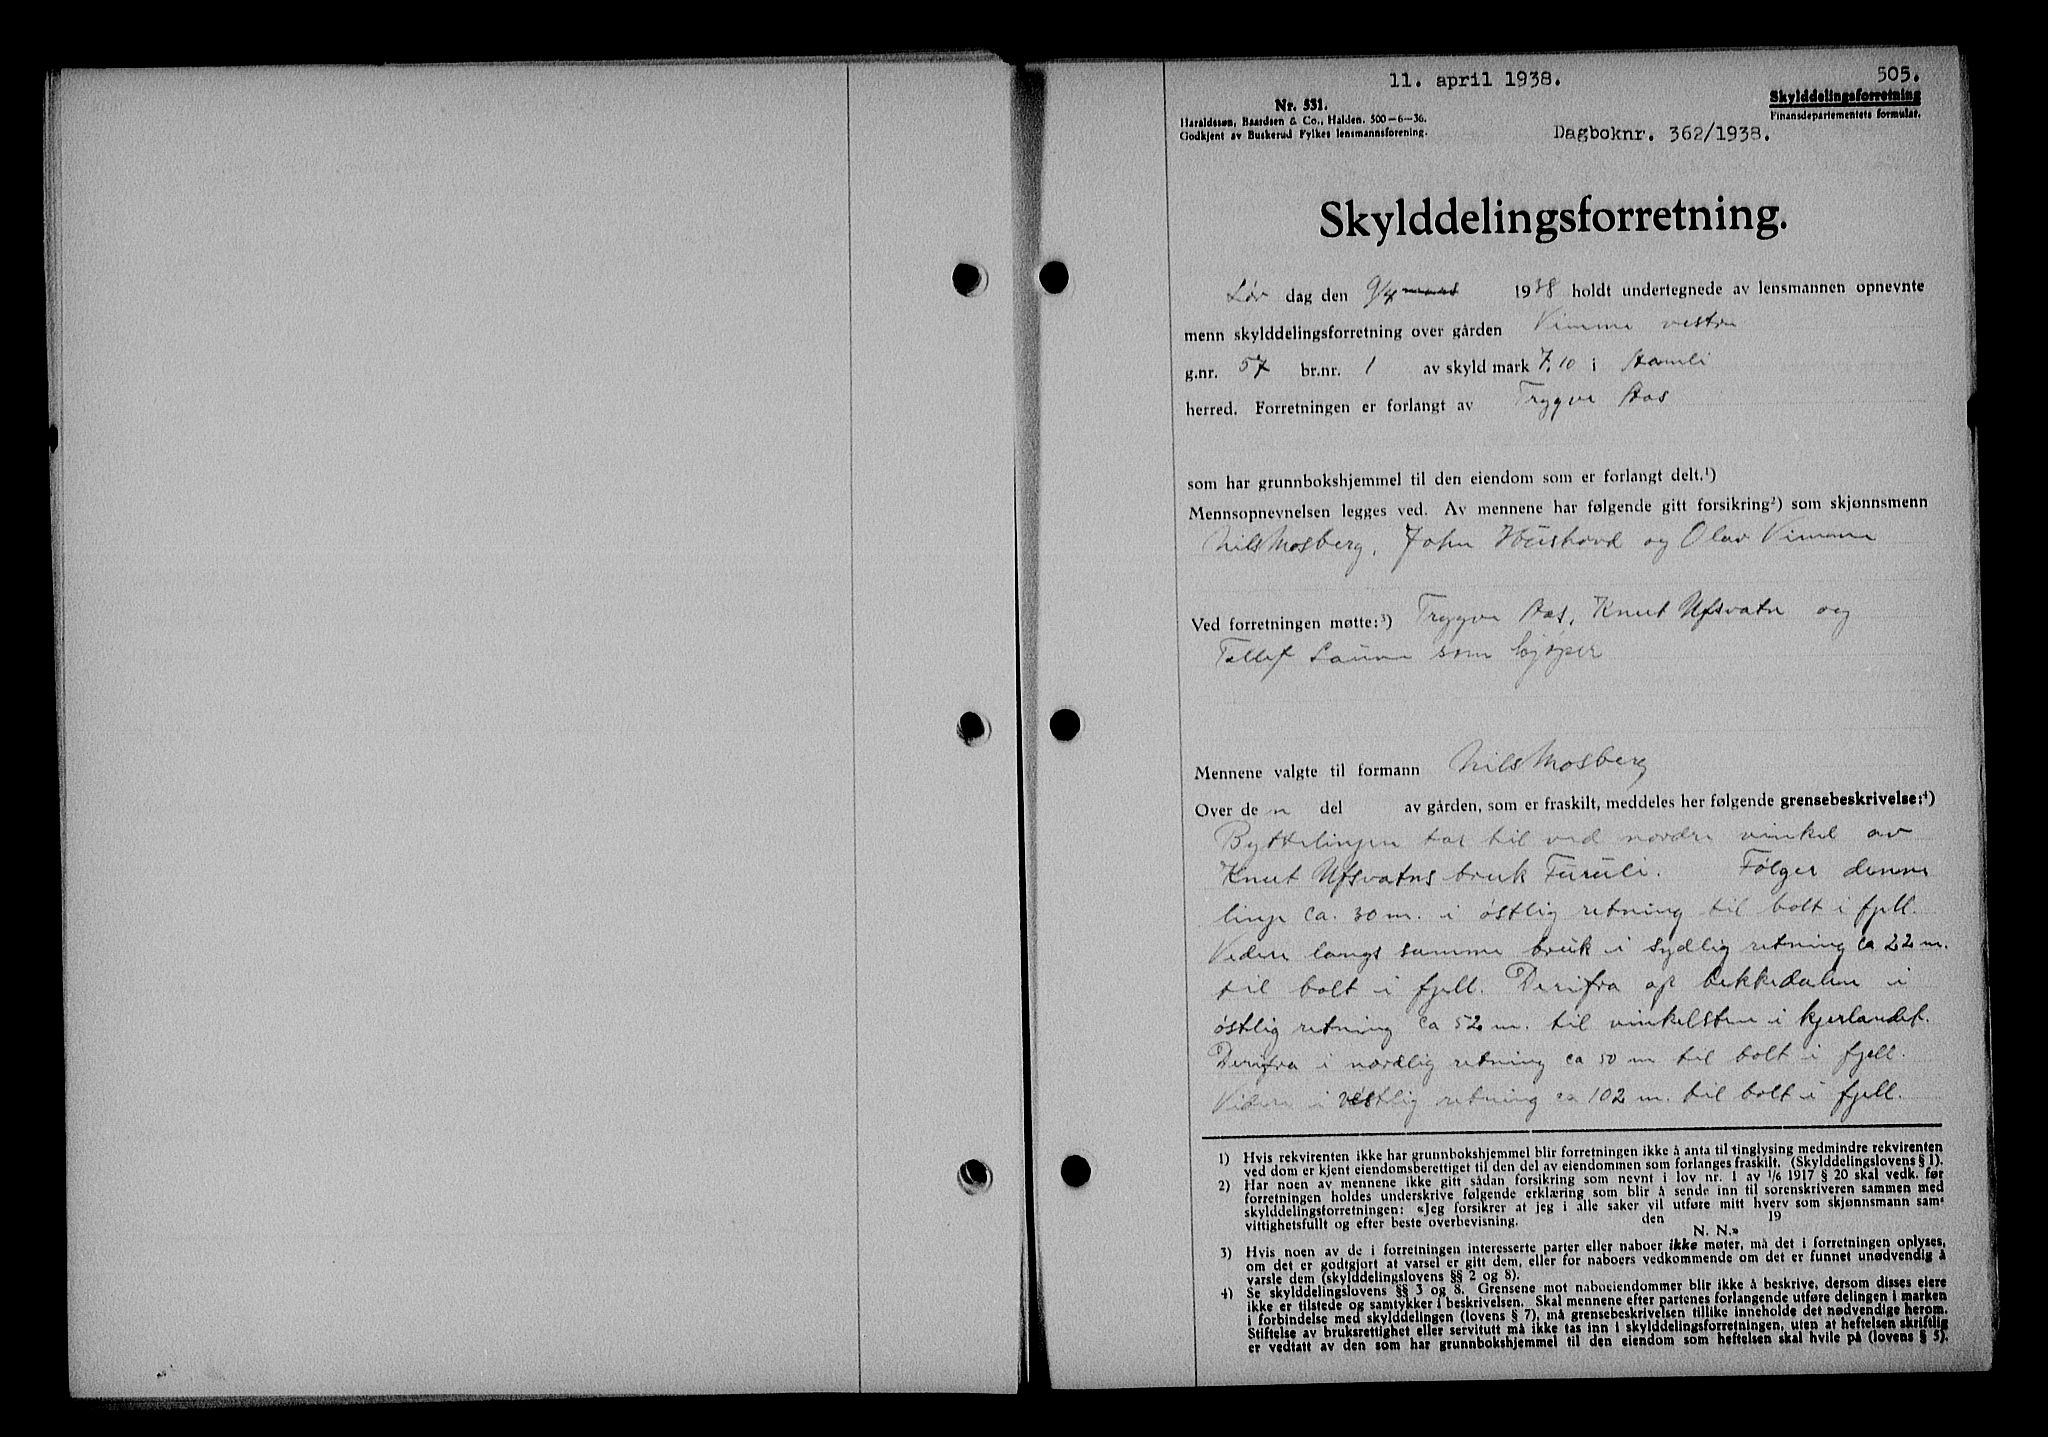 11. april 1938.
505.
Nr. 531.
Haraldssøn, Baardsen & Co., Halden. 500-6-36.
Godkjent av Buskerud Fylkes lensmannsforening.
Skylddelingsforretning
Finansdepartementets formular.
Dagboknr. 362/1938.
Skylddelingsforretning.
Lør dag den 9/4 1938 holdt undertegnede av lensmannen opnevnte
menn skylddelingsforretning over gården Vimme vestre
g.nr. 57 br.nr. 1 av skyld mark 7,10 i Aamli
herred. Forretningen er forlangt av Trygve Aas
som har grunnbokshjemmel til den eiendom som er forlangt delt.¹)
Mennsopnevnelsen legges ved. Av mennene har følgende gitt forsikring²) som skjønnsmenn
Nils Mosberg, John Hushovd og Olav Vimme
Ved forretningen møtte:³) Trygve Aas, Knut Ufsvatn og
Tellef Lauve som kjøper
Mennene valgte til formann Nils Mosberg
Over de n del av gården, som er fraskilt, meddeles her følgende grensebeskrivelse:⁴)
Byttelinjen tar til ved nordre vinkel av
Knut Ufsvatns bruk Furuli. Følger denne
linje ca. 30 m. i østlig retning til bolt i fjell.
Videre langs samme bruk i sydlig retning ca 22 m.
til bolt i fjell. Derifra op bekkedalen i
østlig retning ca 52 m. til vinkelsten i kjerlandet.
Derifra i nordlig retning ca 50 m til bolt i fjell.
Videre i vestlig retning ca 102 m. til bolt i fjell.
1) Hvis rekvirenten ikke har grunnbokshjemmel blir forretningen ikke å anta til tinglysing medmindre rekvirenten
ved dom er kjent eiendomsberettiget til den del av eiendommen som forlanges fraskilt. (Skylddelingslovens § 1).
2) Har noen av mennene ikke gitt sådan forsikring som nevnt i lov nr. 1 av 1/6 1917 § 20 skal vedk. før
forretningen holdes underskrive følgende erklæring som blir å sende inn til sorenskriveren sammen med
skylddelingsforretningen: «Jeg forsikrer at jeg i alle saker vil utføre mitt hverv som skjønnsmann sam-
vittighetsfullt og efter beste overbevisning. den 19
N. N.»
3) Hvis noen av de i forretningen interesserte parter eller naboer ikke møter, må det i forretningen oplyses,
om det er godtgjort at varsel er gitt dem, eller for naboers vedkommende om det er funnet unødvendig å
varsle dem (skylddelingslovens §§ 2 og 8).
4) Se skylddelingslovens §§ 3 og 8. Grensene mot naboeiendommer blir ikke å beskrive, dersom disses eiere
ikke er tilstede og samtykker i beskrivelsen. Skal mennene efter partenes forlangende utføre delingen i marken
i forbindelse med skylddelingen (lovens § 7), må grensebeskrivelsen tillike inneholde det nødvendige herom.
Stiftelse av bruksrettighet eller servitutt må ikke tas inn i skylddelingsforretningen, uten at heftelsen skriftlig
er vedtatt av den som har grunnbokshjemmel til den eiendom som heftelsen skal hvile på (lovens § 5).